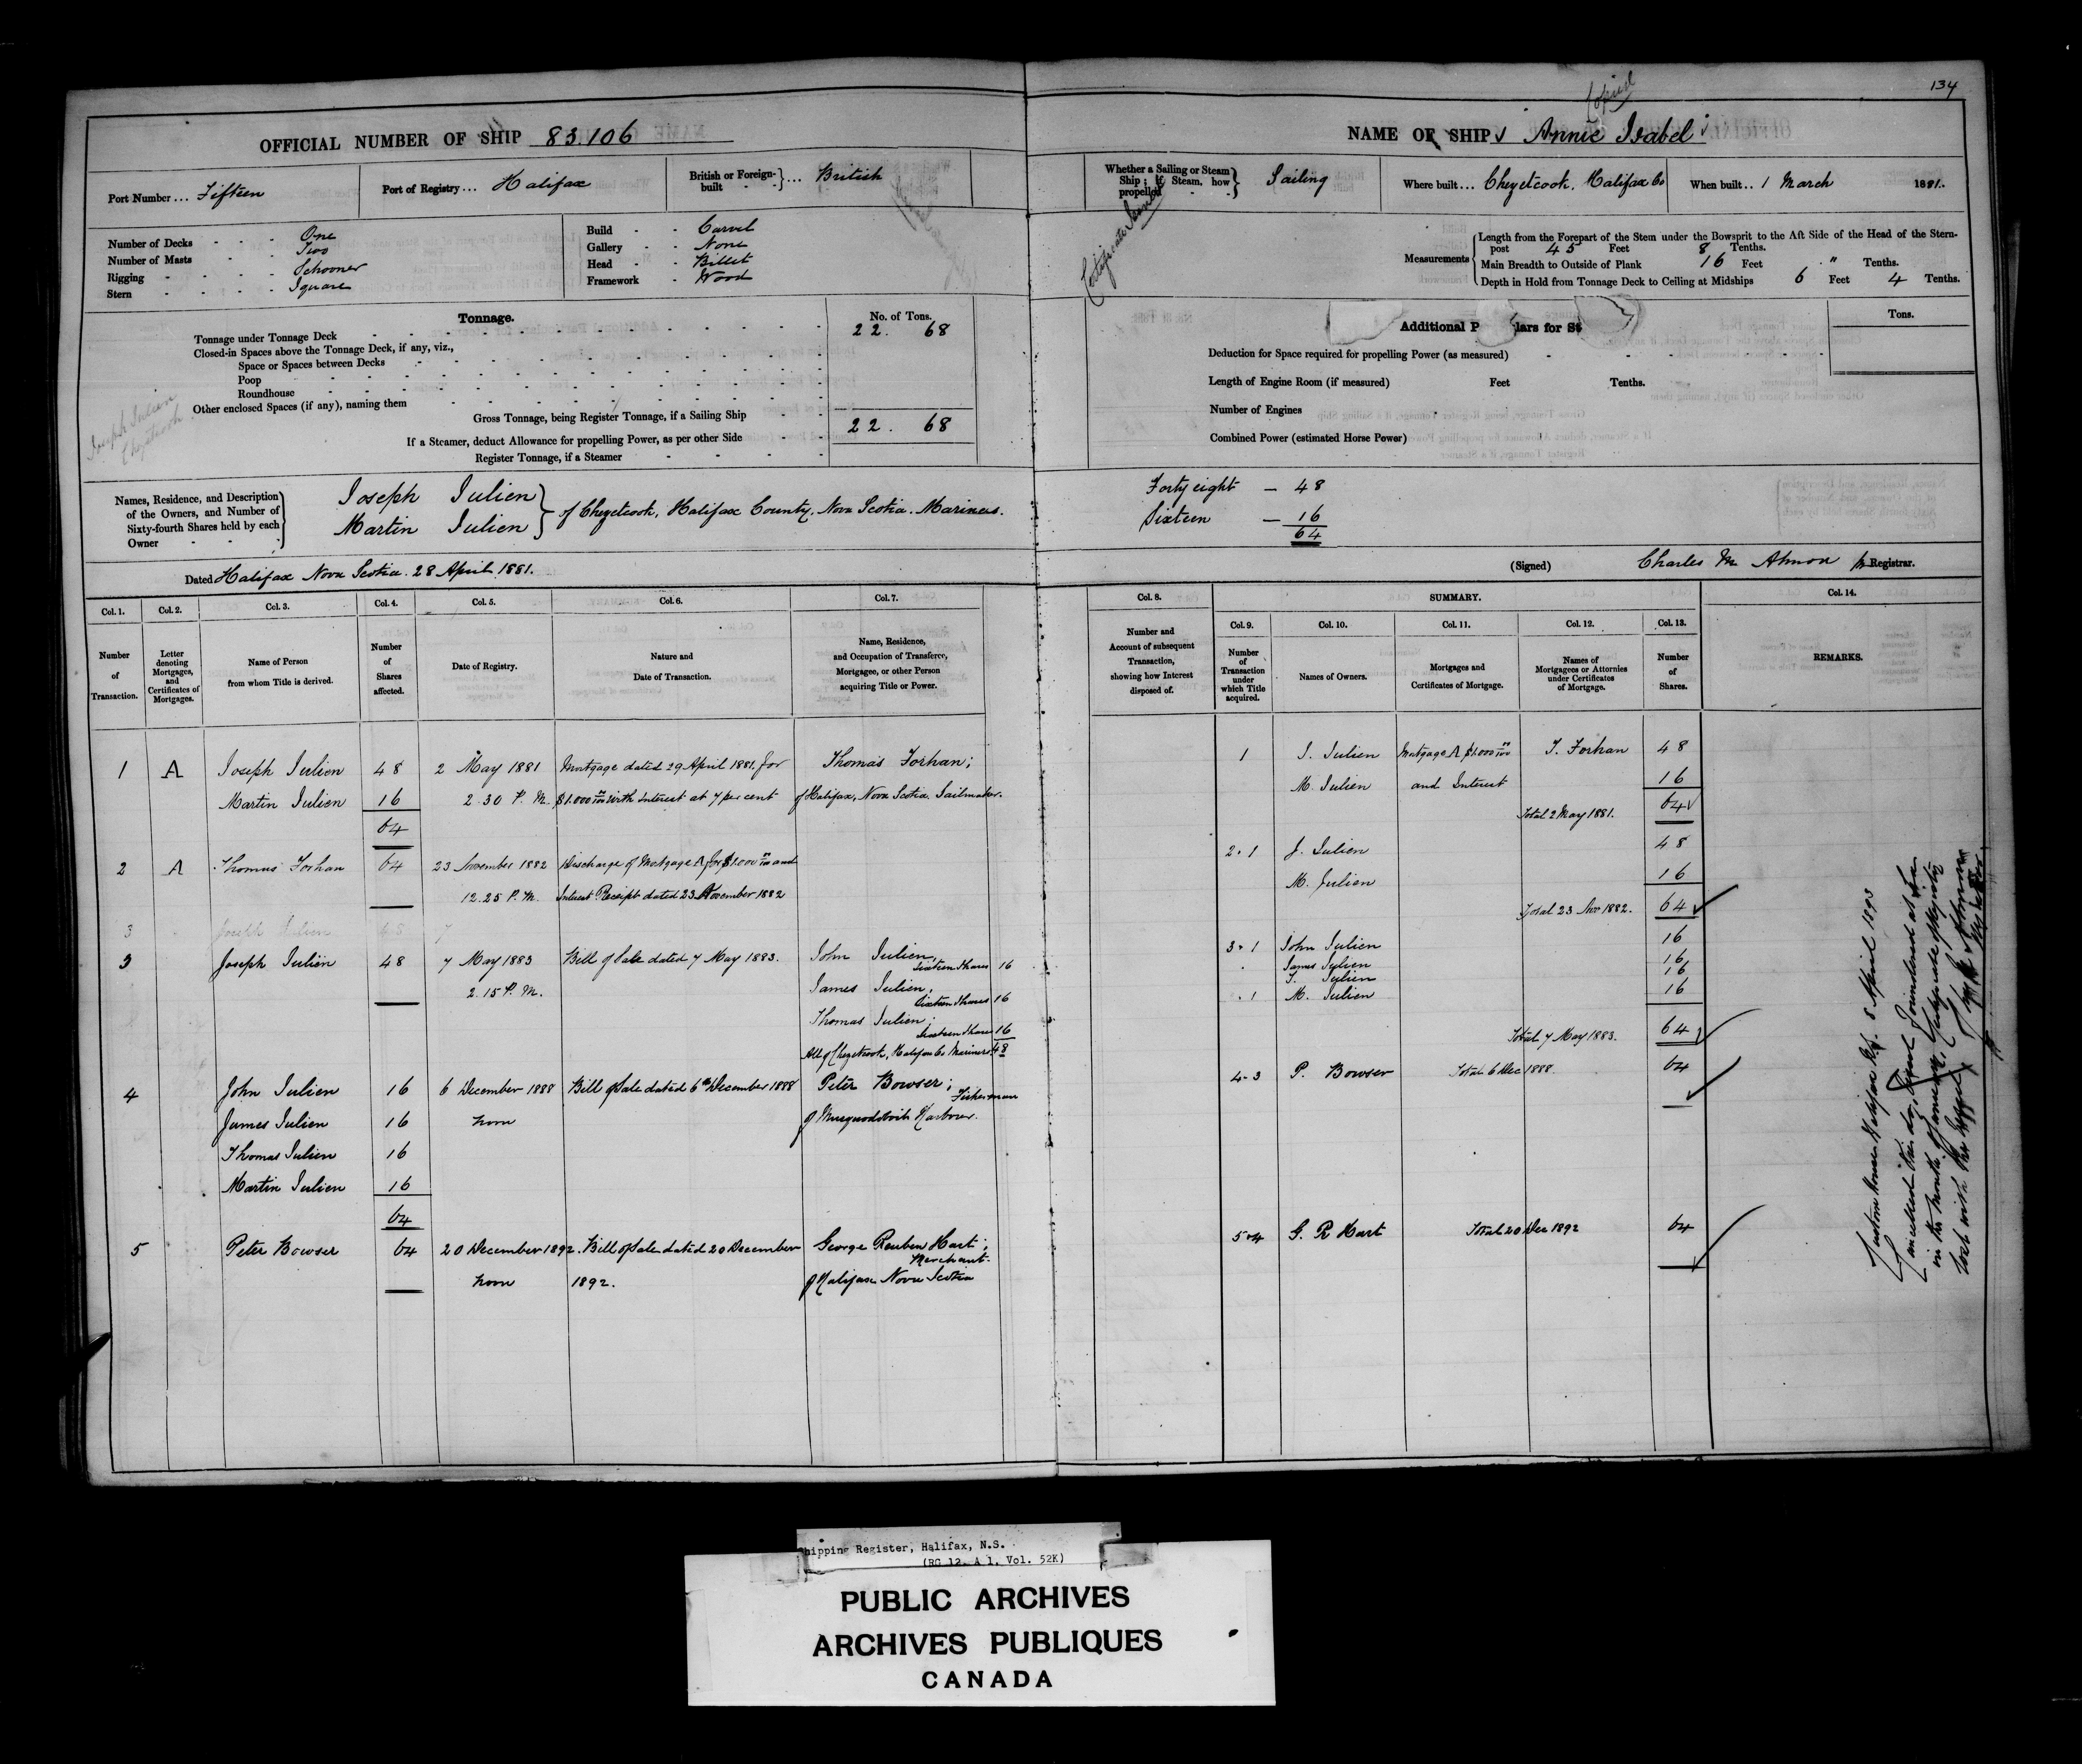 134
Copied
OFFICIAL NUMBER OF SHIP 83.106
NAME OF SHIP Annie Isabel
Port Number ... Fifteen
Port of Registry ... Halifax
British or Foreign-built ... British
Whether a Sailing or Steam Ship ; if Steam, how propelled Sailing
Where built ... Chezetcook, Halifax Co
When built .. 1 March 1881.
Number of Decks One
Number of Masts Two
Rigging Schooner
Stern Square
Build Carvel
Gallery None
Head Billet
Framework Wood
Measurements
Length from the Forepart of the Stem under the Bowsprit to the Aft Side of the Head of the Stern-
post 45 Feet 8 Tenths.
Main Breadth to Outside of Plank 16 Feet " Tenths.
Depth in Hold from Tonnage Deck to Ceiling at Midships 6 Feet 4 Tenths.
Tonnage.
No. of Tons.
Tonnage under Tonnage Deck 22. 68
Closed-in Spaces above the Tonnage Deck, if any, viz.,
Space or Spaces between Decks
Poop
Roundhouse
Other enclosed Spaces (if any), naming them
Gross Tonnage, being Register Tonnage, if a Sailing Ship 22. 68
If a Steamer, deduct Allowance for propelling Power, as per other Side
Register Tonnage, if a Steamer
Joseph Julien
Chezetcook
Additional P lars for St
Tons.
Deduction for Space required for propelling Power (as measured)
Length of Engine Room (if measured) Feet Tenths.
Number of Engines
Combined Power (estimated Horse Power)
Names, Residence, and Description
of the Owners, and Number of
Sixty-fourth Shares held by each
Owner
Joseph Julien
Martin Julien
of Chezetcook, Halifax County, Nova Scotia. Mariners.
Forty eight — 48
Sixteen — 16
64
Dated Halifax Nova Scotia. 28 April 1881.
(Signed) Charles M. Almon Registrar.
Col. 1. Col. 2. Col. 3. Col. 4. Col. 5. Col. 6. Col. 7. Col. 8. SUMMARY. Col. 14.
Col. 9. Col. 10. Col. 11. Col. 12. Col. 13.
Number of Transaction.
Letter denoting Mortgages, and Certificates of Mortgages.
Name of Person from whom Title is derived.
Number of Shares affected.
Date of Registry.
Nature and Date of Transaction.
Name, Residence, and Occupation of Transferee, Mortgagee, or other Person acquiring Title or Power.
Number and Account of subsequent Transaction, showing how Interest disposed of.
Number of Transaction under which Title acquired.
Names of Owners.
Mortgages and Certificates of Mortgage.
Names of Mortgagees or Attornies under Certificates of Mortgage.
Number of Shares.
REMARKS.
1 A Joseph Julien 48 2 May 1881 Mortgage dated 29 April 1881. for Thomas Forhan;
Martin Julien 16 2.30 P. M. $1.000 00/100 with Interest at 7 per cent of Halifax, Nova Scotia. Sailmaker.
64
2 A Thomas Forhan 64 23 November 1882 Discharge of Mortgage A for $1.000 00/100 and
12.25 P. M. Interest Receipt dated 23 November 1882
3 Joseph Julien 48 7
3 Joseph Julien 48 7 May 1883 Bill of Sale dated 7 May 1883. John Julien,
Sixteen Shares 16
2.15 P. M. James Julien,
Sixteen Shares 16
Thomas Julien;
Sixteen Shares 16
All of Chezetcook, Halifax Co Mariners 48
4 John Julien 16 6 December 1888 Bill of Sale dated 6th December 1888 Peter Bowser;
Fisherman
James Julien 16 noon of Musquodoboit Harbour.
Thomas Julien 16
Martin Julien 16
64
5 Peter Bowser 64 20 December 1892. Bill of Sale dated 20 December George Reuben Hart;
Merchant.
noon 1892. of Halifax Nova Scotia
1 J. Julien Mortgage A $1.000 00/100 T. Forhan 48
M. Julien and Interest 16
Total 2 May 1881. 64
2.1 J. Julien 48
M. Julien 16
Total 23 Nov 1882. 64
3.1 John Julien 16
James Julien 16
T. Julien 16
.1 M. Julien 16
Total 7 May 1883. 64
4.3 P. Bowser Total 6 Dec 1888. 64
5.4 G. R Hart Total 20 Dec 1892 64
Custom House Halifax N.S. 8 April 1893
Cancelled this day,
in the month of January, Certificate of Registry
lost with the Vessel
Shipping Register, Halifax, N.S.
(RG 12, A 1, Vol. 52K)
PUBLIC ARCHIVES
ARCHIVES PUBLIQUES
CANADA